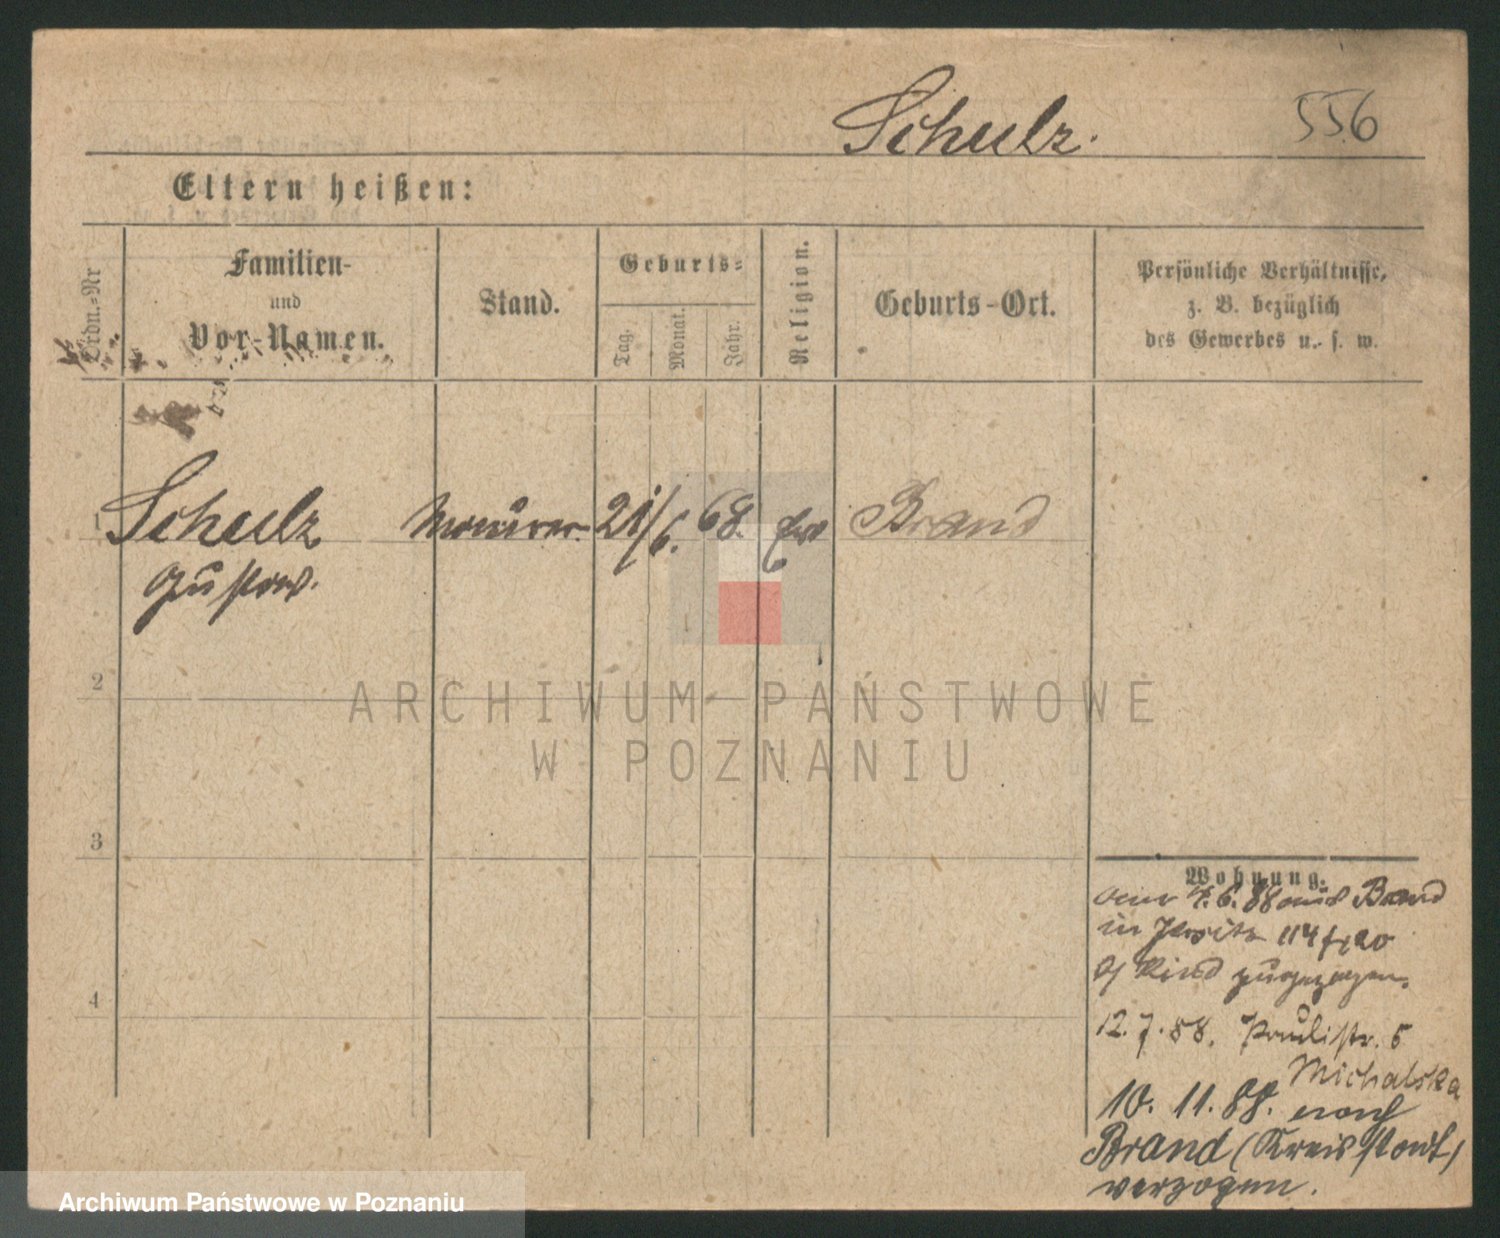 Schulz.
556
Eltern heißen:
Ordn.-Nr
Familien-
und
Vor-Namen.
Stand.
Geburts-
Tag.
Monat.
Jahr.
Religion.
Geburts-Ort.
Persönliche Verhältnisse,
z. B. bezüglich
des Gewerbes u. s. w.
1 Schulz Maurer. 21/6. 68. Brand
Gustav.
2
ARCHIWUM PAŃSTWOWE
W POZNANIU
3
Wohnung.
4. 6. 88 aus Brand
in 114
zugezogen.
4
12. 7. 88. Paulistr. 5
Michalska
10. 11. 88. nach
Brand (Kreis
verzogen.
Archiwum Państwowe w Poznaniu